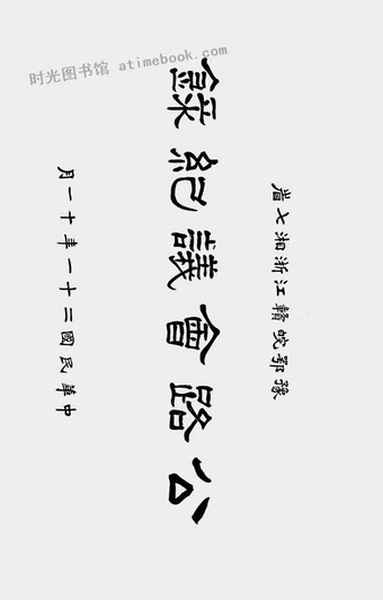 时光图书馆 atimebook.com
豫鄂皖贛江浙湘七省
公路會議紀錄
中華民國二十一年十一月